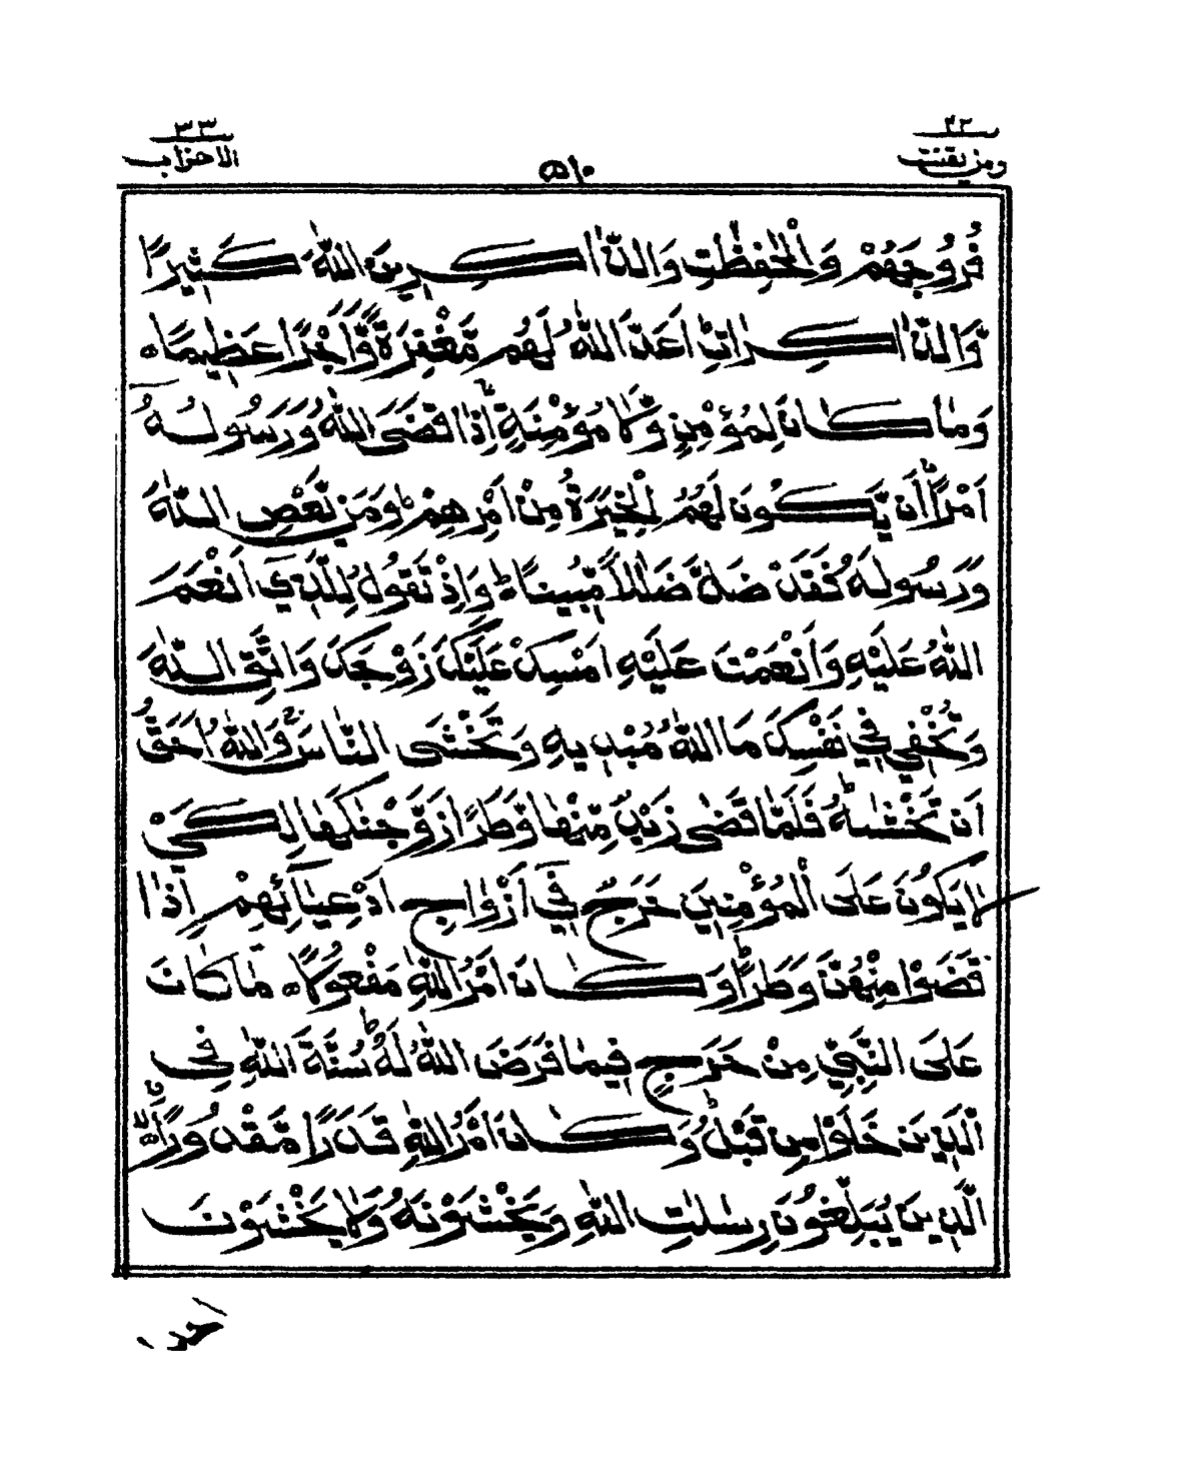 ٢٢
ومن يقنت
٥١٠
٣٣
الاحزاب
فُرُوْجَهُمْ وَالْحٰفِظٰتِ وَالذّٰكِرِيْنَ اللّٰهَ كَثِيْرًا
وَّالذّٰكِرٰتِ اَعَدَّ اللّٰهُ لَهُمْ مَّغْفِرَةً وَّاَجْرًا عَظِيْمًا ه
وَمَا كَانَ لِمُؤْمِنٍ وَّلَا مُؤْمِنَةٍ اِذَا قَضَى اللّٰهُ وَرَسُولُهٗ
اَمْرًا اَنْ يَّكُوْنَ لَهُمُ الْخِيَرَةُ مِنْ اَمْرِهِمْ ط وَمَنْ يَّعْصِ اللّٰهَ
وَرَسُولَهٗ فَقَدْ ضَلَّ ضَلٰلًا مُّبِينًا ط وَاِذْ تَقُوْلُ لِلَّذِيْ اَنْعَمَ
اللّٰهُ عَلَيْهِ وَاَنْعَمْتَ عَلَيْهِ اَمْسِكْ عَلَيْكَ زَوْجَكَ وَاتَّقِ اللّٰهَ
وَتُخْفِيْ فِيْ نَفْسِكَ مَا اللّٰهُ مُبْدِيهِ وَتَخْشَى النَّاسَ ج وَاللّٰهُ اَحَقُّ
اَنْ تَخْشٰىهُ ط فَلَمَّا قَضٰى زَيْدٌ مِّنْهَا وَطَرًا زَوَّجْنٰكَهَا لِكَيْ
لَا يَكُوْنَ عَلَى الْمُؤْمِنِيْنَ حَرَجٌ فِيْ اَزْوَاجِ اَدْعِيَآئِهِمْ اِذَا
قَضَوْا مِنْهُنَّ وَطَرًا ط وَكَانَ اَمْرُ اللّٰهِ مَفْعُوْلًا ه مَا كَانَ
عَلَى النَّبِيِّ مِنْ حَرَجٍ فِيْمَا فَرَضَ اللّٰهُ لَهٗ ط سُنَّةَ اللّٰهِ فِى
الَّذِيْنَ خَلَوْا مِنْ قَبْلُ ط وَكَانَ اَمْرُ اللّٰهِ قَدَرًا مَّقْدُوْرًا ه
الَّذِيْنَ يُبَلِّغُوْنَ رِسٰلٰتِ اللّٰهِ وَيَخْشَوْنَهٗ وَلَا يَخْشَوْنَ
احدا